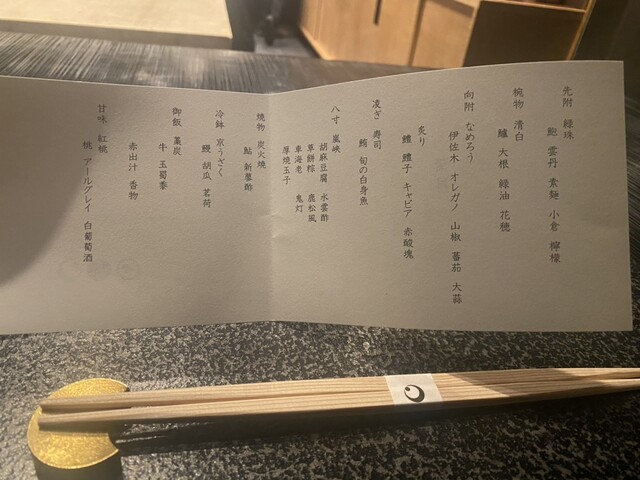 先附 緑珠
鮑 雲丹 素麺 小倉 檸檬
椀物 清白
鱸 大根 緑油 花穂
向附 なめろう
伊佐木 オレガノ 山椒 蕃茄 大蒜
炙り
鱧 鱧子 キャビア 赤酸塊
凌ぎ 寿司
鮪 旬の白身魚
八寸 嵐峡
胡麻豆腐 水雲酢
草餅粽 鹿松風
車海老 鬼灯
厚焼玉子
焼物 炭火焼
鮎 新蓼酢
冷鉢 京うざく
鰻 胡瓜 茗荷
御飯 藁炭
牛 玉蜀黍
赤出汁 香物
甘味 紅桃
桃 アールグレイ 白葡萄酒